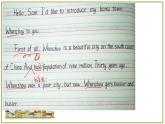 Hello, Sam. I'd like to introduce my home town
Wenzhou to you.
First of all, Wenzhou is a beautiful city on the south coast
of China. And population of nine million. Thirty years ago,
Wenzhou was a poor city, but now, Wenzhou gets busier and
busier.